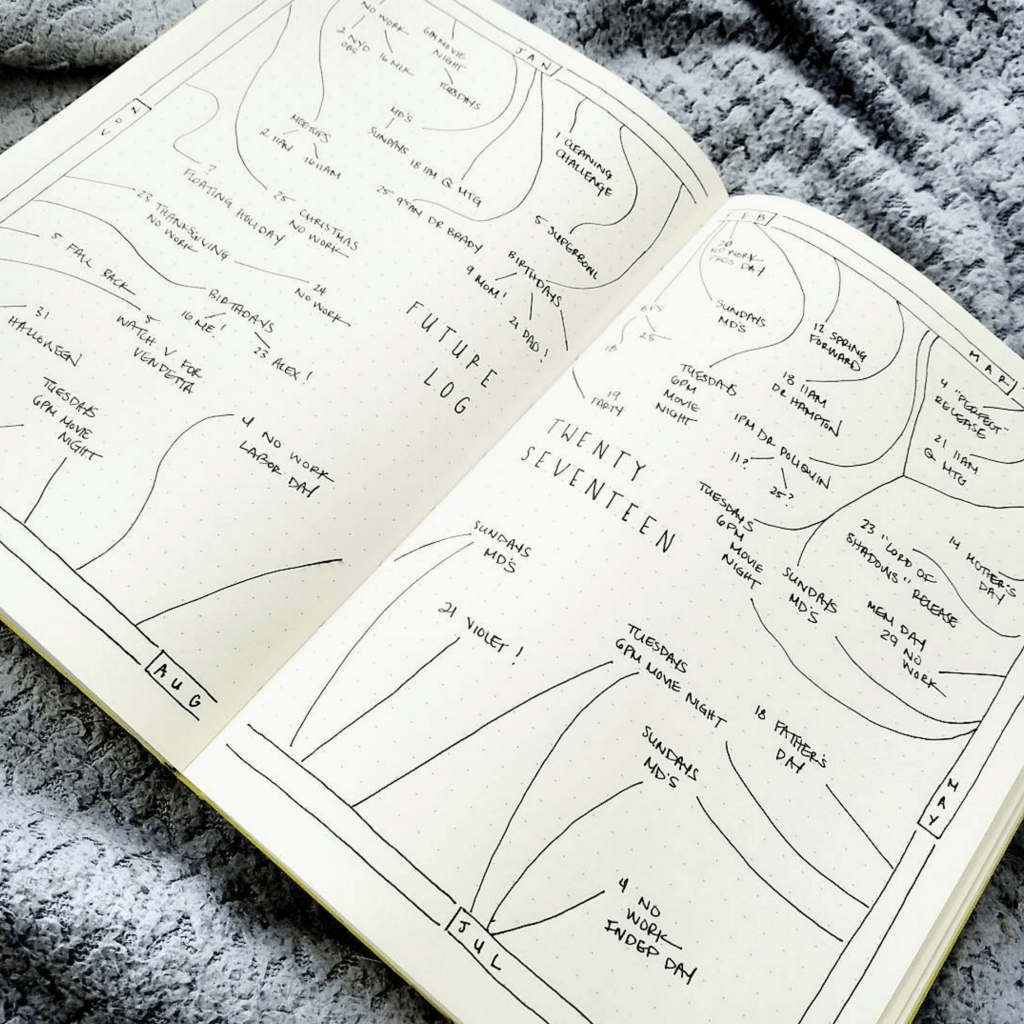 NO WORK
2 NYD
OBS
16 MLK
6PM MOVIE
NIGHT
TUESDAYS
JAN
MEETUPS
2 11AM
16 11AM
MD'S
SUNDAYS
18 1PM Q MTG
25 9AM DR BRADY
1 CLEANING
CHALLENGE
5 SUPERBOWL
BIRTHDAYS
9 MOM!
21 DAD!
NOV
?
FLOATING HOLIDAY
25 CHRISTMAS
NO WORK
23 THANKSGIVING
NO WORK
24
NO WORK
5 FALL BACK
BIRTHDAYS
16 ME!
23 ALEX!
5
WATCH V FOR
VENDETTA
31
HALLOWEEN
TUESDAYS
6PM MOVIE
NIGHT
4 NO WORK
LABOR DAY
FUTURE
LOG
AUG
FEB
20
NO WORK
PRES DAY
SUNDAYS
MD'S
25
18
19
PARTY
TUESDAYS
6PM
MOVIE
NIGHT
12 SPRING
FORWARD
13 11AM
DR HAMPTON
1PM DR POLIQUIN
11?
25?
MAR
4 "PERFECT"
RELEASE
21 11AM
Q MTG
TWENTY
SEVENTEEN
TUESDAYS
6PM
MOVIE
NIGHT
SUNDAYS
MD'S
23 "LORD OF
SHADOWS" RELEASE
14 MOTHER'S
DAY
MEM DAY
29 NO
WORK
SUNDAYS
MD'S
21 VIOLET!
TUESDAYS
6PM MOVIE NIGHT
SUNDAYS
MD'S
18 FATHER'S
DAY
MAY
4 NO
WORK
INDEP DAY
JUL